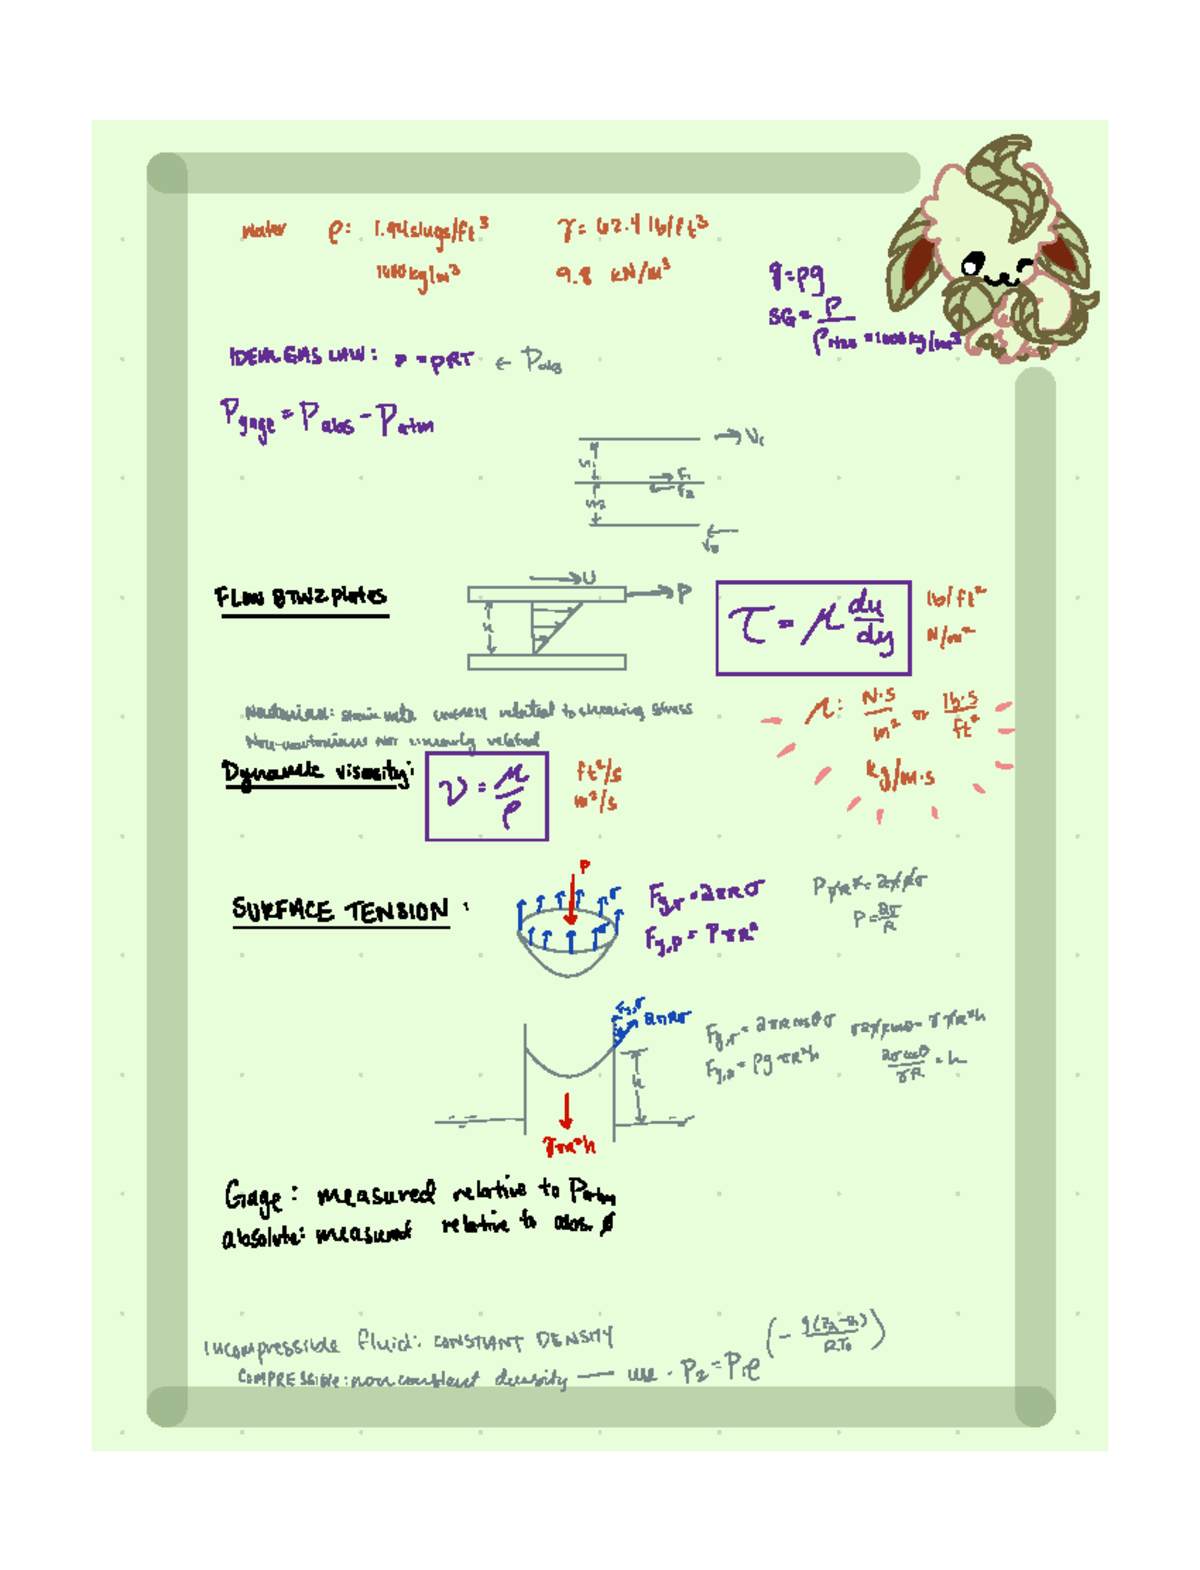 water ρ: 1.94slugs/ft³ γ= 62.4 lb/ft³
1000kg/m³ 9.8 kN/m³
γ=ρg
SG = ρ / ρH2O =1000 kg/m³
IDEAL GAS LAW: P =ρRT ← Pabs
Pgage = Pabs - Patm
→V1
h1
F1
F2
h2
V2
FLOW BTW 2 plates
U
P
h
τ = μ du/dy
lb/ft²
N/m²
Newtonian: strain rate linearly related to shearing stress
Non-newtonian: not linearly related
μ: N·S/m² or lb·s/ft²
kg/m·s
Dynamic viscosity:
ν = μ/ρ
ft²/s
m²/s
SURFACE TENSION :
P
σ
Fy,σ = 2πRσ
Fy,p = PπR²
PπR² = 2πRσ
P = 2σ/R
Fy,σ
2πRσ
h
γπR²h
Fy,σ = 2πRcosθσ
Fy,p = ρg πR²h
σ2πRcosθ = γπR²h
2σcosθ/γR = h
Gage: measured relative to Patm
absolute: measured relative to abs. 0
Incompressible fluid: CONSTANT DENSITY
COMPRESSIBLE: non constant density — use · P2 = P1e^(- g(z2-z1)/RT0)